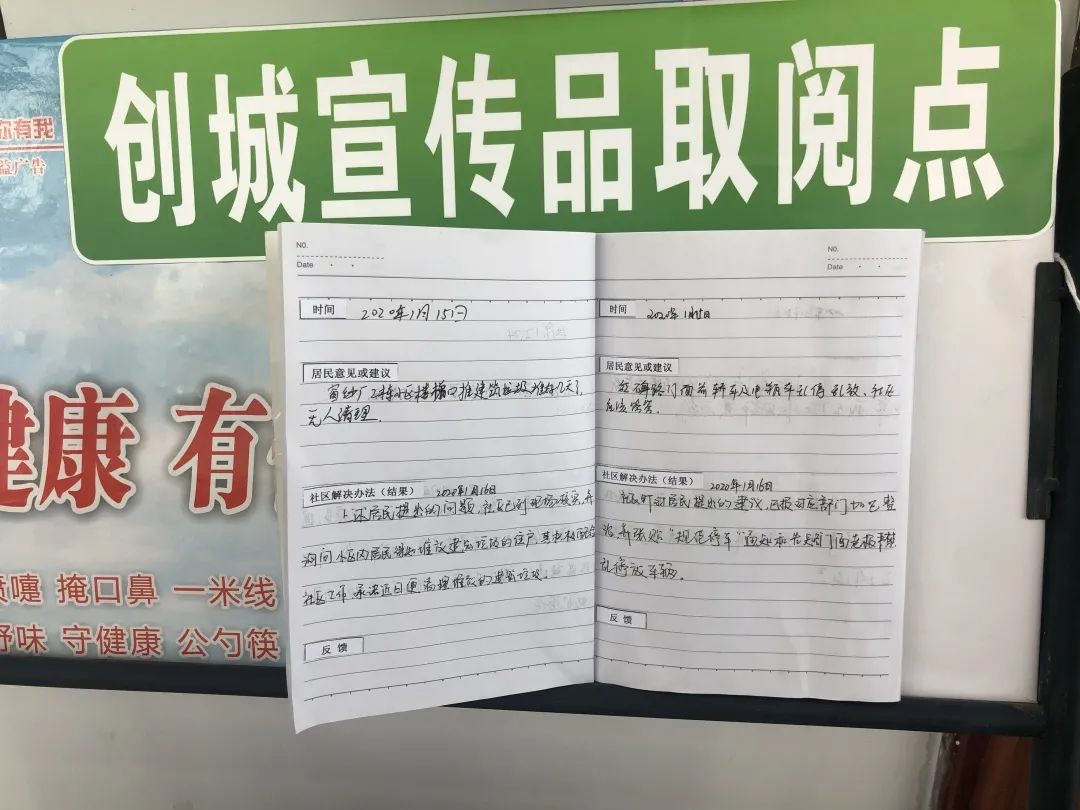 创城宣传品取阅点
你有我
益广告
健康 有
喷嚏 掩口鼻 一米线
野味 守健康 公勺筷
NO.
Date
时间 2020年1月15日
居民意见或建议
堆建筑垃圾 堆好几天了
无人清理.
社区解决办法（结果） 2020年1月16日
上述居民提出的问题，社区已到现场核实，并
询问小区内居民 堆放建筑垃圾的住户，其
社区工作，承诺近日便清理堆放的建筑垃圾。
反馈
NO.
Date
时间 2020年1月15日
居民意见或建议
门面前轿车及电瓶车乱停乱放、社区
应该
社区解决办法（结果） 2020年1月16日
社区针对居民提出的建议，已报对应部门
并张贴“规范停车”通知
乱停放车辆。
反馈